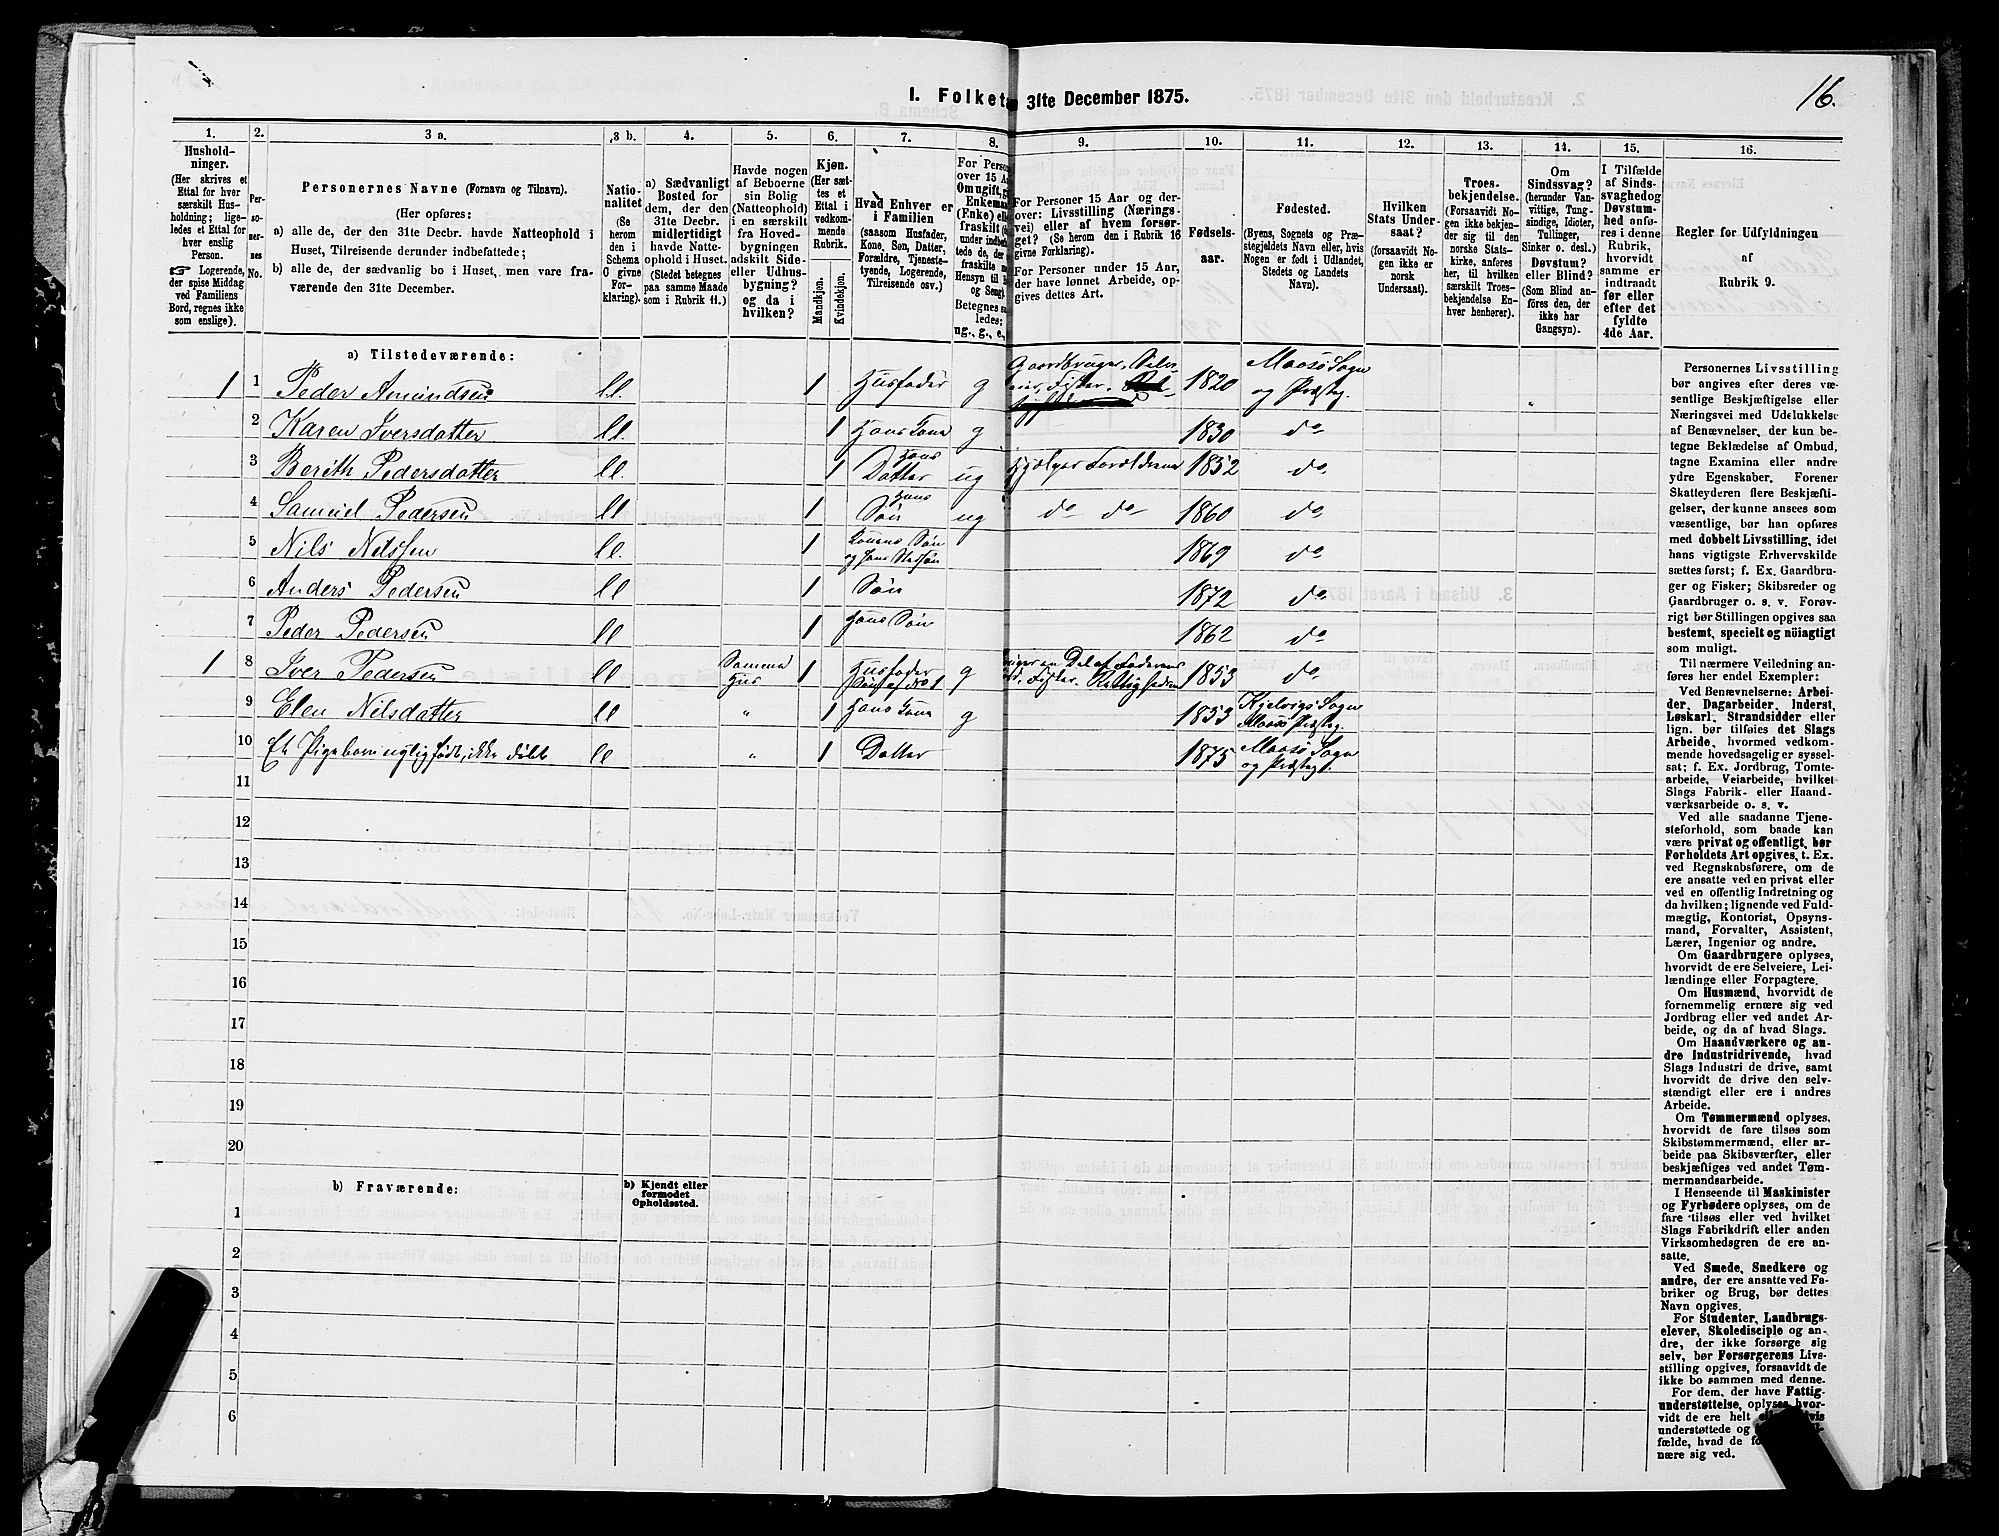 16.
I. Folket 31te December 1875.
1. 2. 3 a. 3 b. 4. 5. 6. 7. 8. 9. 10. 11. 12. 13. 14. 15. 16.
Hushold-
ninger.
(Her skrives et
Ettal for hver
særskilt Hus-
holdning; lige-
ledes et Ettal for
hver enslig
Person.
☞ Logerende,
der spise Middag
ved Familiens
Bord, regnes ikke
som enslige).
Per-
so-
ner-
nes
No.
Personernes Navne (Fornavn og Tilnavn).
(Her opføres:
a) alle de, der den 31te Decbr. havde Natteophold i
Huset, Tilreisende derunder indbefattede;
b) alle de, der sædvanlig bo i Huset, men vare fra-
værende den 31te December.
Natio-
nalitet
(Se
herom
den i
Schema
C givne
For-
klaring).
a) Sædvanligt
Bosted for
dem, der den
31te Decbr.
midlertidigt
havde Natte-
ophold i Huset.
(Stedet betegnes
paa samme Maade
som i Rubrik 11.)
Havde nogen
af Beboerne
sin Bolig
(Natteophold)
i en særskilt
fra Hoved-
bygningen
adskilt Side-
eller Udhus-
bygning?
og da i
hvilken?
Kjøn.
(Her sæt-
tes et
Ettal i
vedkom-
mende
Rubrik.
Mandkjøn.
Kvindekjøn.
Hvad Enhver er
i Familien
(saasom Husfader,
Kone, Søn, Datter,
Forældre, Tjeneste-
tyende, Logerende,
Tilreisende osv.)
For Perso
over 15 A
Om ugift, g
Enkema
(Enke) elle
fraskilt (h
under indbe
tede de, de
fraskilte m
Hensyn til B
og Seng)
Betegnes sa
ledes:
ug., g., e.,
For Personer 15 Aar og der-
over: Livsstilling (Nærings-
vei) eller af hvem forsør-
get? (Se herom den i Rubrik 16
givne Forklaring).
For Personer under 15 Aar,
der have lønnet Arbeide, op-
gives dettes Art.
Fødsels-
aar.
Fødested.
(Byens, Sognets og Præ-
stegjeldets Navn eller, hvis
Nogen er født i Udlandet,
Stedets og Landets
Navn).
Hvilken
Stats Under-
saat?
(forsaavidt No-
gen ikke er
norsk
Undersaat).
Troes-
bekjendelse.
(Forsaavidt No-
gen ikke bekjen-
der sig til den
norske Stats-
kirke, anføres
her, til hvilken
særskilt Troes-
bekjendelse En-
hver henhører).
Om
Sindssvag?
(herunder Van-
vittige, Tung-
sindige, Idioter,
Tullinger,
Sinker o. desl.)
Døvstum?
eller Blind?
(Som Blind an-
føres den, der
ikke har
Gangsyn).
I Tilfælde
af Sinds-
svaghed og
Døvstum-
hed anfø-
res i denne
Rubrik,
hvorvidt
samme er
indtraadt
før eller
efter det
fyldte
4de Aar.
Regler for Udfyldningen
af
Rubrik 9.
a) Tilstedeværende:
1 1 Peder Amundsen ll. 1 Husfader g Gaardbruger, Selv-
eier, Fisker. 1820 Maasø Sogn
og Præsteg.
2 Karen Iversdatter ll. 1 Hans Kone g 1830 do
3 Berith Pedersdatter ll. 1 Hans
Datter ug Hjælper Forældrene 1852 do
4 Samuel Pedersen ll 1 Hans
Søn ug do do 1860 do
5 Nils Nilssen ll. 1 Konens Søn
og hans Stedsøn 1869 do
6 Anders Pedersen ll 1 Søn 1872 do
7 Peder Pedersen ll 1 Hans Søn 1862 do
1 8 Iver Pedersen ll Samme
Hus 1 Husfader
Søn af No 1 g en Del af Faderens
Fisker. 1853 do
9 Elen Nilsdatter ll " 1 Hans Kone g 1853 Kjelvigs Sogn
Maasø Præsteg.
10 Et Pigebarn nylig født, ikke døbt ll " 1 Datter 1875 Maasø Sogn
og Præsteg.
11
12
13
14
15
16
17
18
19
20
b) Fraværende:
b) Kjendt eller
formodet
Opholdssted.
1
2
3
4
5
6
Personernes Livsstilling
bør angives efter deres væ-
sentlige Beskjæftigelse eller
Næringsvei med Udelukkelse
af Benævnelser, der kun be-
tegne Beklædelse af Ombud,
tagne Examina eller andre
ydre Egenskaber. Forener
Skatteyderen flere Beskjæfti-
gelser, der kunne ansees som
væsentlige, bør han opføres
med dobbelt Livsstilling, idet
hans vigtigste Erhvervskilde
sættes først; f. Ex. Gaardbru-
ger og Fisker; Skibsreder og
Gaardbruger o. s. v. Forøv-
rigt bør Stillingen opgives saa
bestemt, specielt og nöiagtigt
som muligt.
Til nærmere Veiledning an-
føres her endel Exempler:
Ved Benævnelserne: Arbei-
der, Dagarbeider, Inderst,
Løskarl, Strandsidder eller
lign. bør tilføies det Slags
Arbeide, hvormed vedkom-
mende hovedsagelig er syssel-
sat; f. Ex. Jordbrug, Tomte-
arbeide, Veiarbeide, hvilket
Slags Fabrik- eller Haand-
værksarbeide o. s. v.
Ved alle saadanne Tjene-
steforhold, som baade kan
være privat og offentligt, bør
Forholdets Art opgives, t. Ex.
ved Regnskabsførere, om de
ere ansatte ved en privat eller
ved en offentlig Indretning og
da hvilken; lignende ved Fuld-
mægtig, Kontorist, Opsyns-
mand, Forvalter, Assistent,
Lærer, Ingeniør og andre.
Om Gaardbrugere oplyses,
hvorvidt de ere Selveiere, Lei-
lændinge eller Forpagtere.
Om Husmænd, hvorvidt de
fornemmelig ernære sig ved
Jordbrug eller ved andet Ar-
beide, og da af hvad Slags.
Om Haandværkere og an-
dre Industridrivende, hvad
Slags Industri de drive, samt
hvorvidt de drive den selv-
stændigt eller ere i andres
Arbeide.
Om Tømmermænd oplyses,
hvorvidt de fare tilsøs som
Skibstømmermænd, eller ar-
beide paa Skibsværfter, eller
beskjæftiges ved andet Tøm-
mermandsarbeide.
I Henseende til Maskinister
og Fyrbødere oplyses, om de
fare tilsøs eller ved hvilket
Slags Fabrikdrift eller anden
Virksomhedsgren de ere an-
satte.
Ved Smede, Snedkere og
andre, der ere ansatte ved Fa-
briker og Brug, bør dettes
Navn opgives.
For Studenter, Landbrugs-
elever, Skoledisciple og an-
dre, der ikke forsørge sig
selv, bør Forsørgerens Livs-
stilling opgives, forsaavidt de
ikke bo sammen med denne.
For dem, der have Fattig-
understøttelse, oplyses, hvor-
vidt de ere helt
understøttede og
fælde, hvad de
nære sig ved.